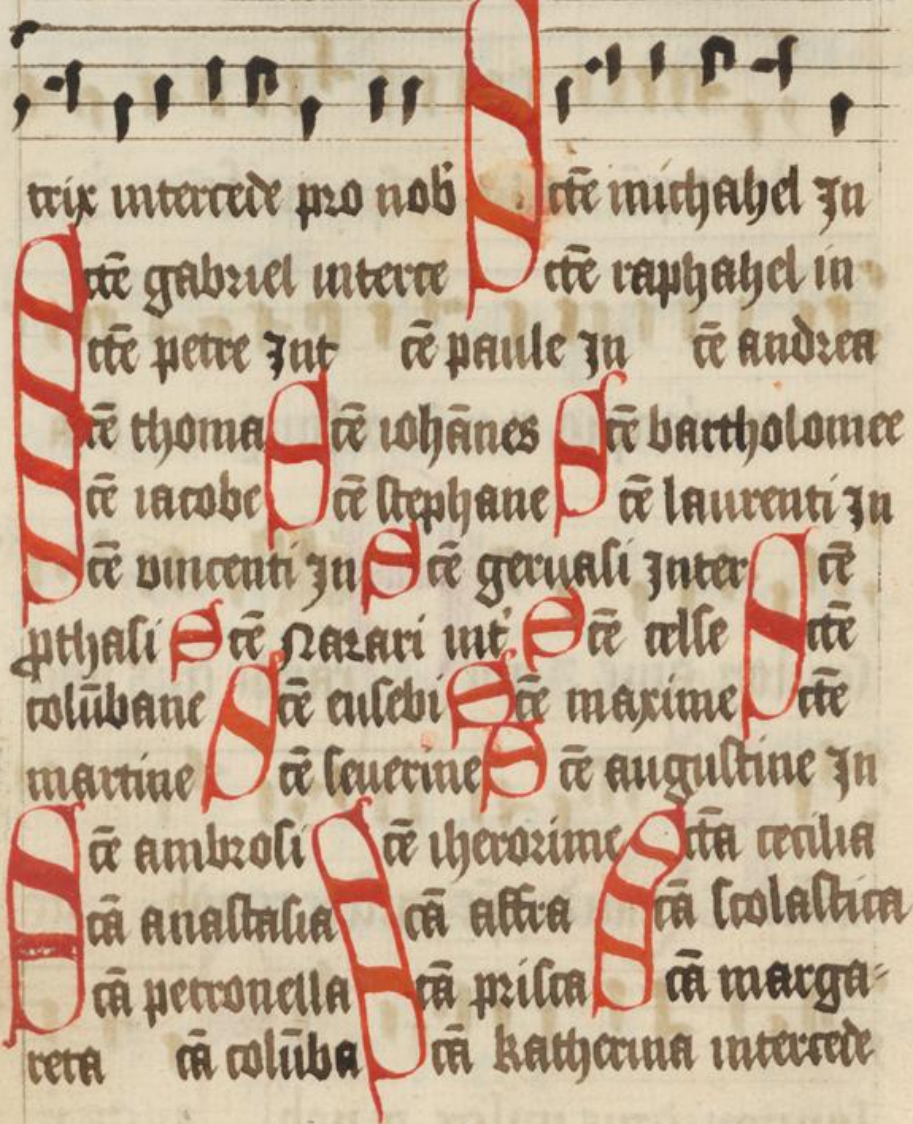 trix intercede pro nob̛ Sctē michahel In
Sctē gabriel interce Sctē raphahel in
Sctē petre Int cē paule In cē andrea
Scē thoma Scē iohānes Scē bartholomee
Scē iacobe Scē stephane cē laurenti In
Scē vincenti In Scē geruasi Inter Scē
ꝓthasi Scē Nazari int̛ Scē celse Sctē
colūbane Scē eusebi Scē maxime Sctē
martine Scē seuerine Scē augustine In
Scē ambrosi Scē iheronime Sctā cecilia
Scā anastasia Scā affra Scā scolastica
Scā petronella Scā prisca Scā marga⸗
reta cā colūba Scā katherina intercede